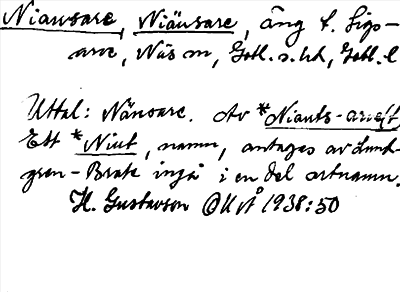 Niausare, Niäusare, äng t. Sigs-
arve, Näs sn, Gotl. s. hd, Gotl. l
Uttal: Näusare. Av *Niauts-arve
Ett *Niut, namn, antages av Lund-
gren-Brate ingå i en del ortnamn.
H. Gustavson OUÅ 1938:50